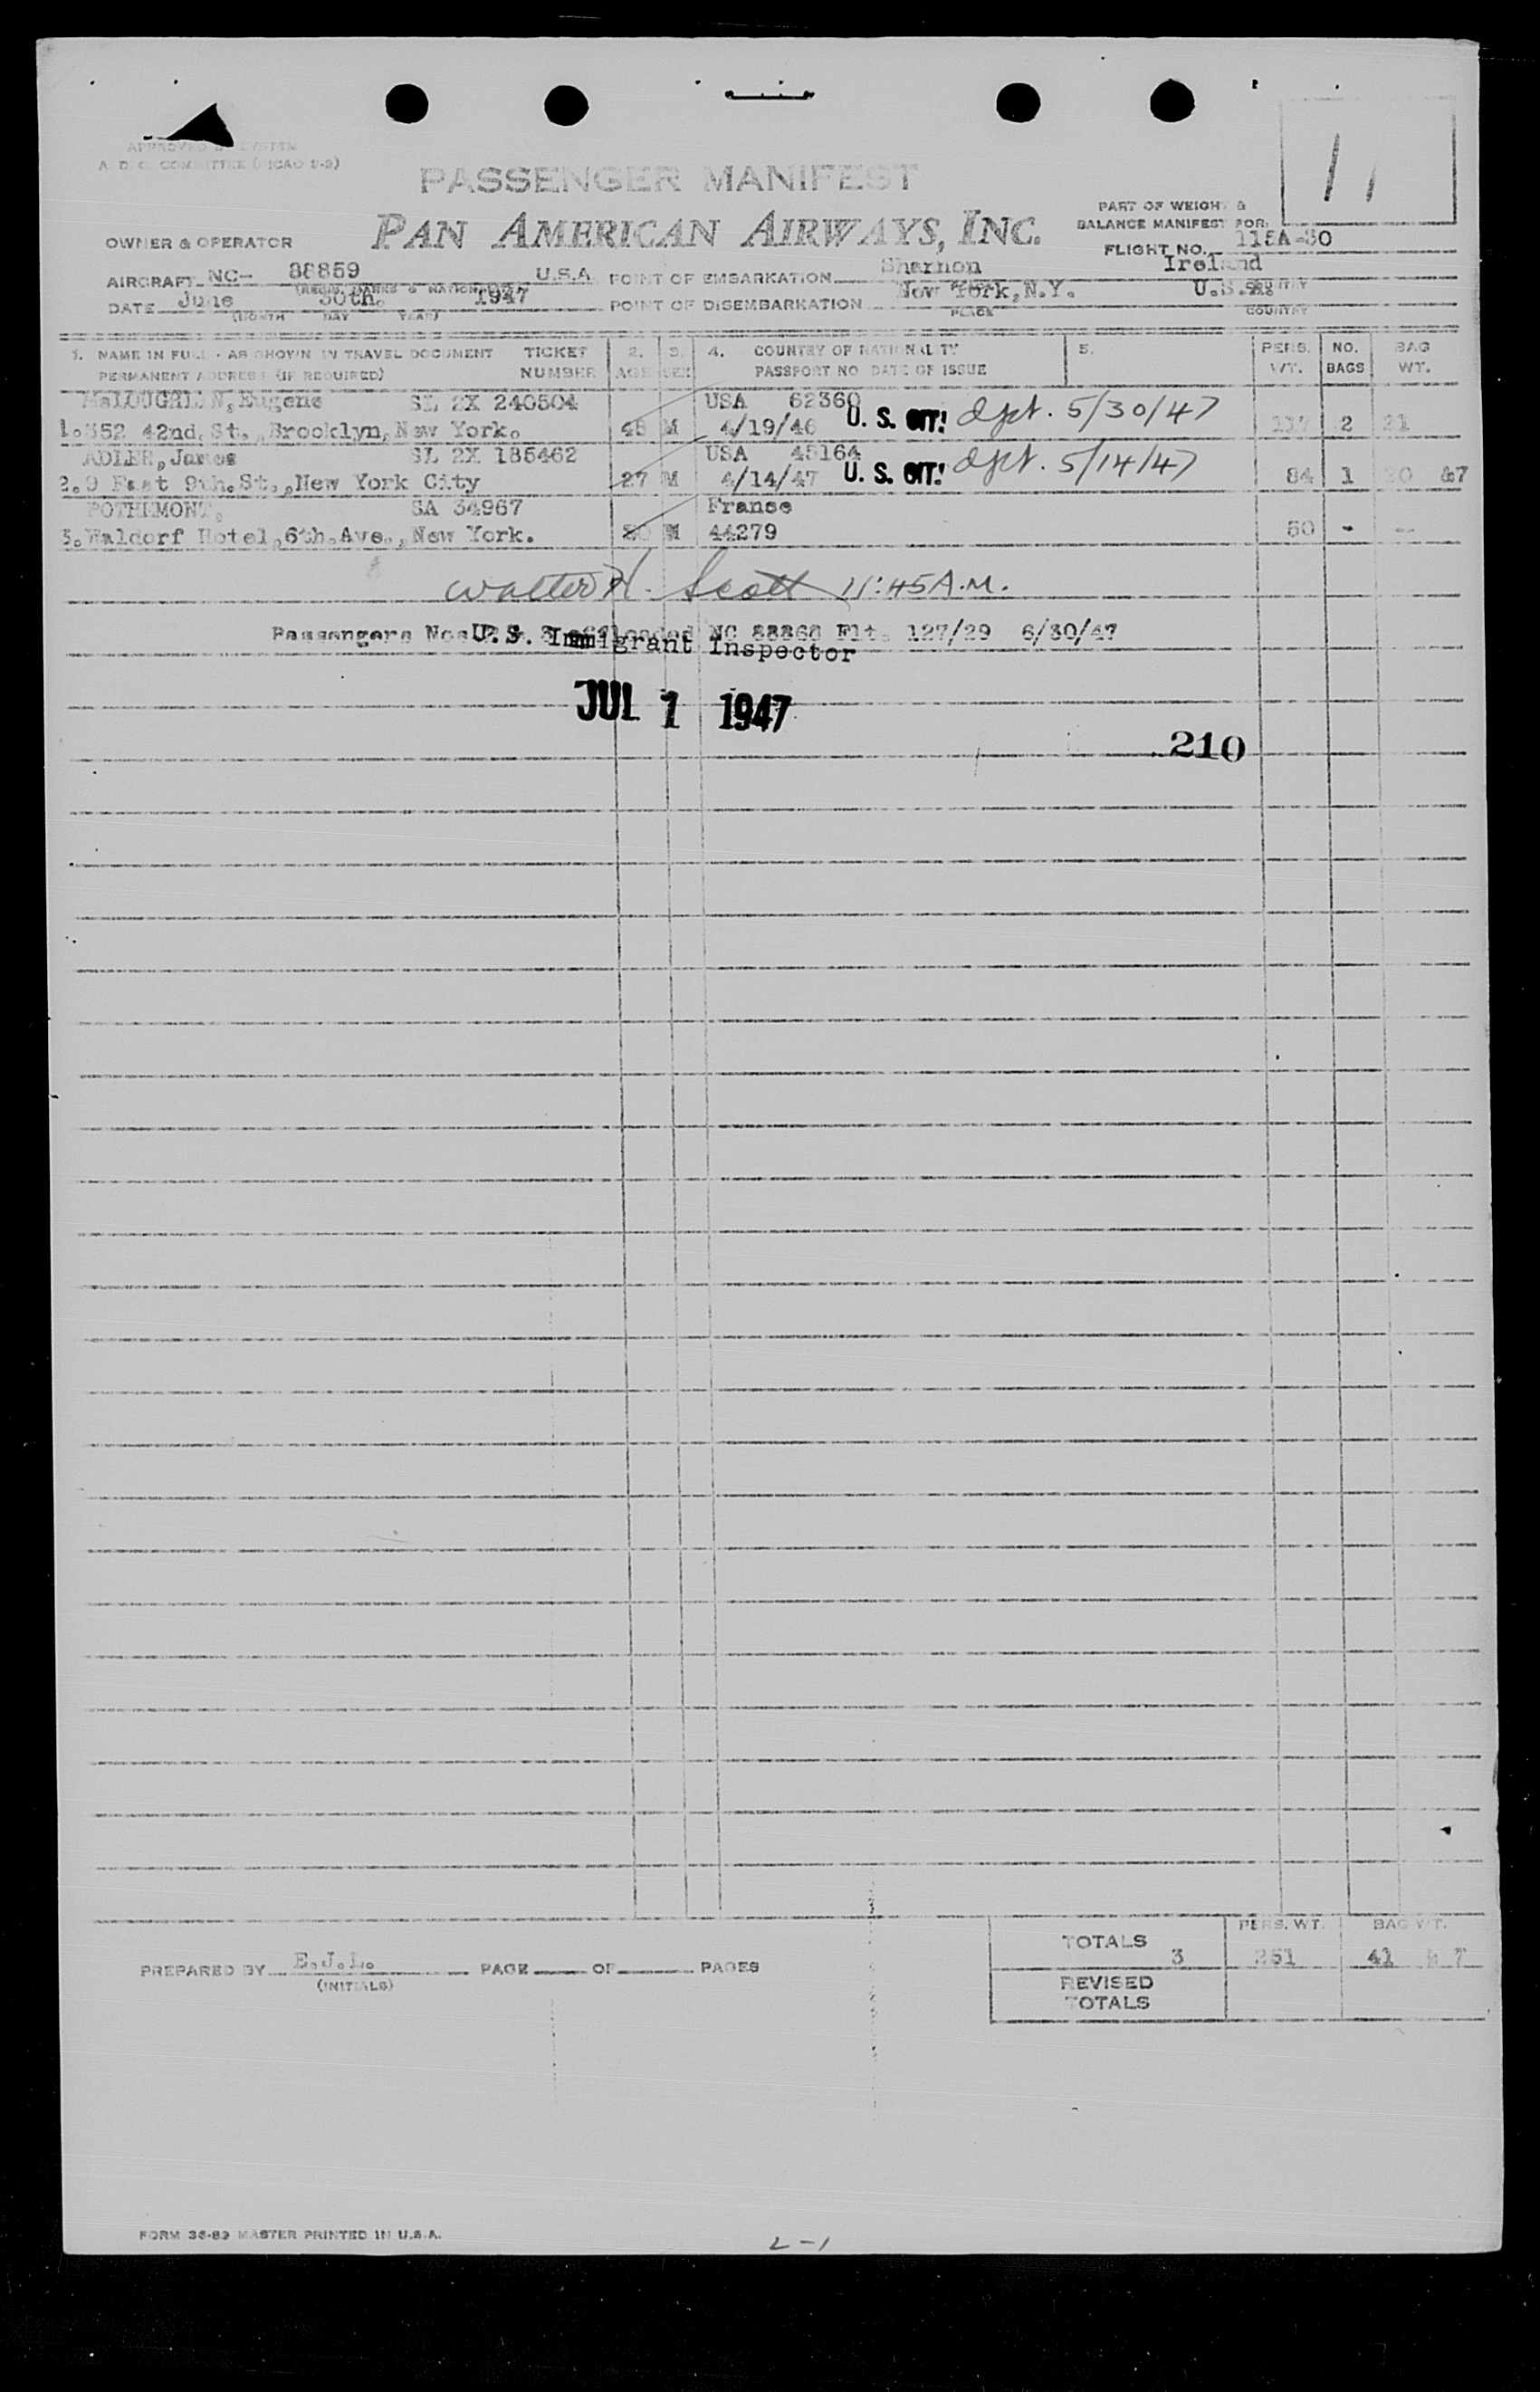 A. D. C. COMMITTEE (ICAO 2-2)
11
PASSENGER MANIFEST
PAN AMERICAN AIRWAYS, INC.
PART OF WEIGHT &
BALANCE MANIFEST FOR
OWNER & OPERATOR
FLIGHT NO. 115A-30
AIRCRAFT NC- 88859 U.S.A POINT OF EMBARKATION Shannon Ireland
(REGIS. MARKS & NATIONALITY)
DATE June 30th. 1947 POINT OF DISEMBARKATION New York, N.Y. U.S.A.
(MONTH DAY YEAR) PLACE COUNTRY
1. NAME IN FULL - AS SHOWN IN TRAVEL DOCUMENT TICKET 2. 3. 4. COUNTRY OF NATIONALITY 5. PERS. NO. BAG
PERMANENT ADDRESS (IF REQUIRED) NUMBER AGE SEX PASSPORT NO DATE OF ISSUE WT. BAGS WT.
McLOUGHLIN, Eugene SL 2X 240504 USA 62360
1. 352 42nd. St., Brooklyn, New York. 45 M 4/19/46 U. S. CIT! dpt. 5/30/47 117 2 21
ADLER, James SL 2X 185462 USA 45164
2. 9 East 9th. St., New York City 27 M 4/14/47 U. S. CIT! dpt. 5/14/47 84 1 20 &7
POTHEMONT, SA 34967 France
3. Waldorf Hotel, 6th. Ave., New York. M 44279 50 - -
Walter H. Scott 11:45 A.M.
Passengers Nos offloaded NC 88868 Flt. 127/29 6/30/47
U. S. Immigrant Inspector
JUL 1 1947
210
PERS. WT. BAG WT.
TOTALS 3 251 41 & 7
PREPARED BY E.J.L. PAGE OF PAGES
(INITIALS)
REVISED
TOTALS
FORM 36-82 MASTER PRINTED IN U.S.A.
L-1